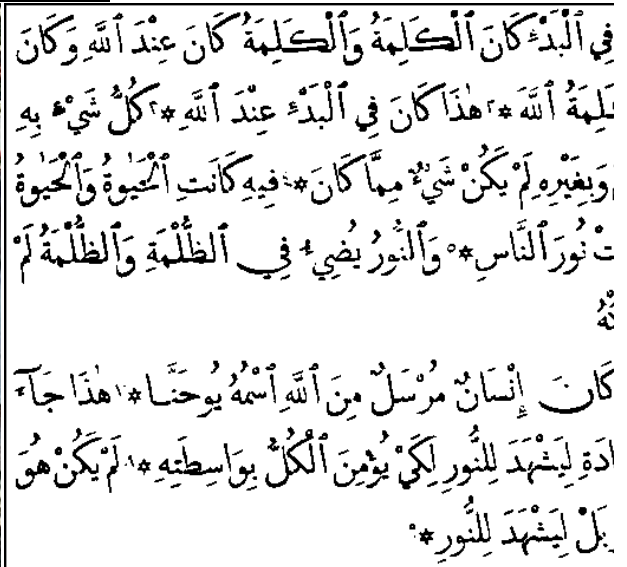 فِي ٱلْبَدْءِ كَانَ ٱلْكَلِمَةُ وَٱلْكَلِمَةُ كَانَ عِنْدَ ٱللهِ وَكَانَ
كَلِمَةُ ٱللهَ *٢ هٰذَا كَانَ فِي ٱلْبَدْءِ عِنْدَ ٱللهِ *٣ كُلُّ شَيْءٍ بِهِ
وَبِغَيْرِهِ لَمْ يَكُنْ شَيْءٌ مِمَّا كَانَ *٤ فِيهِ كَانَتِ ٱلْحَيٰوةُ وَٱلْحَيٰوةُ
تْ نُورَ ٱلنَّاسِ *٥ وَٱلنُّورُ يُضِيءُ فِي ٱلظُّلْمَةِ وَٱلظُّلْمَةُ لَمْ
كَانَ إِنْسَانٌ مُرْسَلٌ مِنَ ٱللهِ ٱسْمُهُ يُوحَنَّا * هٰذَا جَآءَ
ادَةِ لِيَشْهَدَ لِلنُّورِ لِكَيْ يُؤْمِنَ ٱلْكُلُّ بِوَاسِطَتِهِ * لَمْ يَكُنْ هُوَ
بَلْ لِيَشْهَدَ لِلنُّورِ *